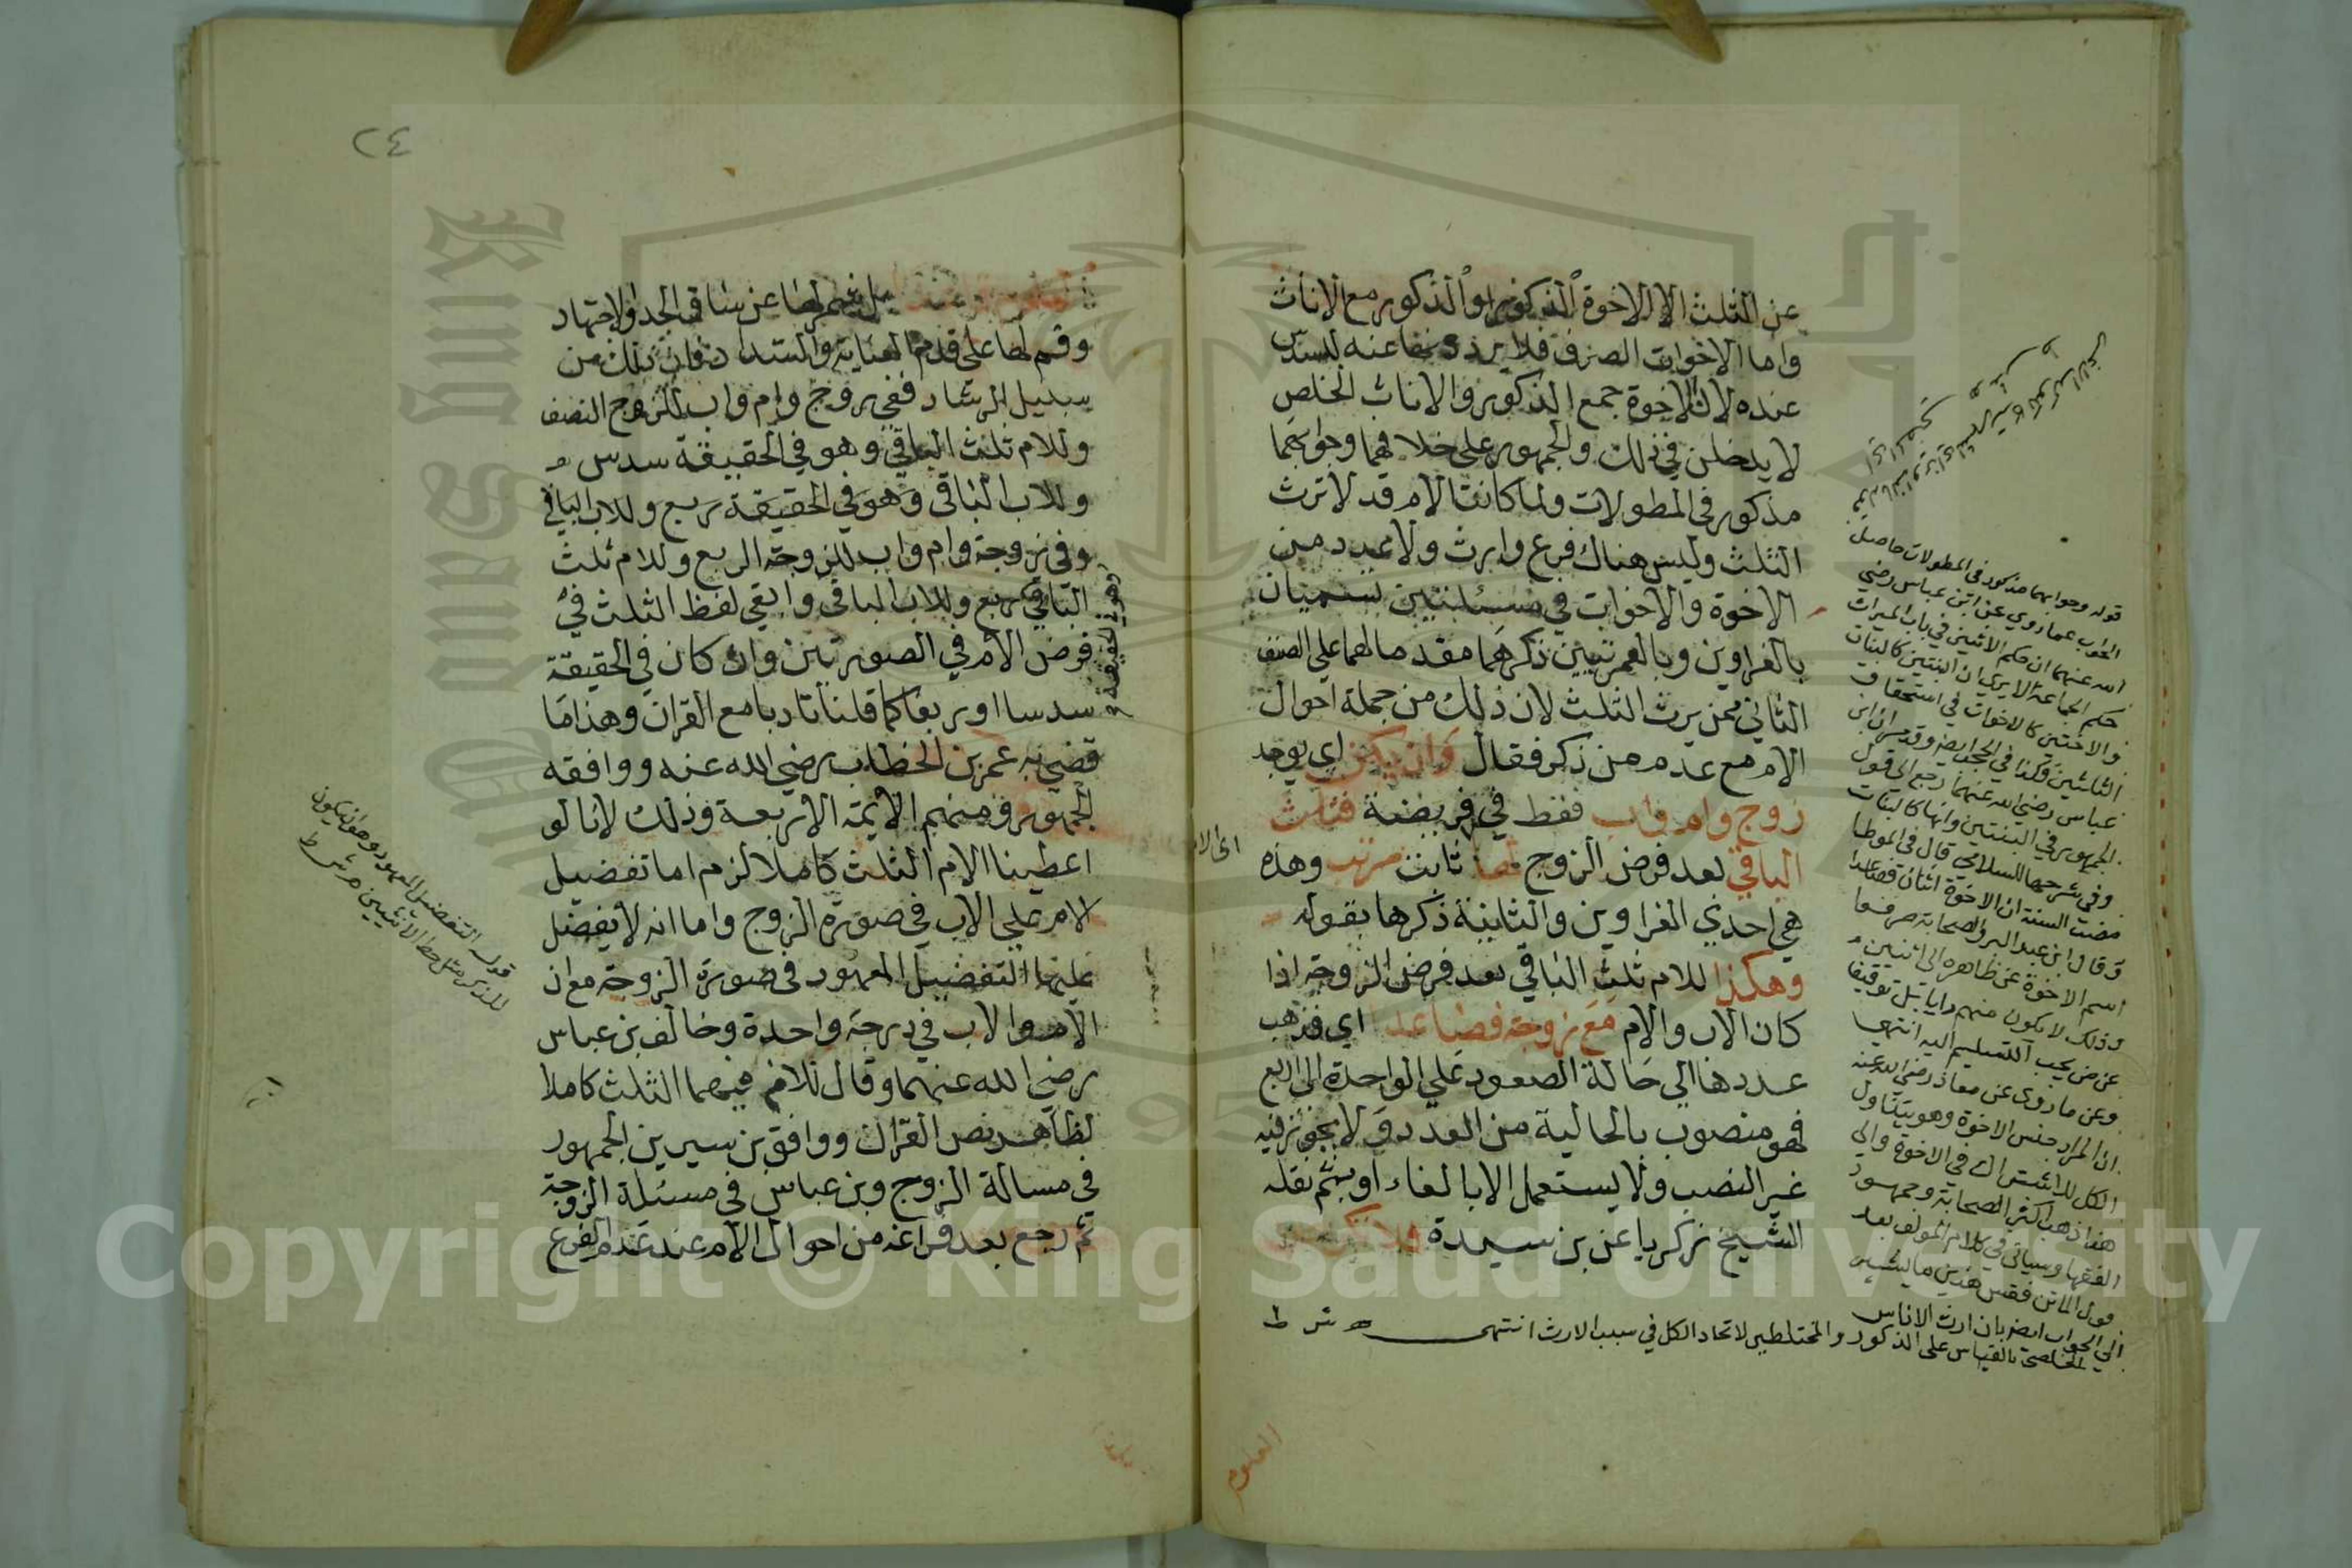 عن الثلث الا الاخوة الذكور او الذكور مع الاناث
واما الاخوات الصرف فلا يردونها عنه للسدس
عنده لان الاخوة جمع الذكور والاناث الخلص
لا يدخلن في ذلك والجمهور على خلافهما وجوابهما
مذكور في المطولات ولما كانت الام قد لا ترث
الثلث وليس هناك فرع وارث ولا عدد من
الاخوة والاخوات في مسئلتين تسميان
بالغراوين وبالعمريتين ذكرهما مقدما لهما علي الصنف
الثاني ممن يرث الثلث لان ذلك من جملة احوال
الام مع عدم من ذكر فقال وان يكن اي يوجد
زوج وام واب فقط في فريضة فثلث
الباقي بعد فرض الزوج لها ثابت مرتب وهذه
هي احدي الغراوين والثانية ذكرها بقوله
وهكذا للام ثلث الباقي بعد فرض الزوجة اذا
كان الاب والام مع زوجة فصاعدا اي فذهب
عددها الي حالة الصعود علي الواحدة الى اربع
فهو منصوب بالحالية من العدد ولا يجوز فيه
غير النصب ولا يستعمل الا بالفاء او بثم نقله
الشيخ زكريا عن بن سيدة فلا تكن عن
قوله وجوابهما مذكور في المطولات حاصل
الجواب عما روي عن ابن عباس رضي
الله عنهما ان حكم الاثنين في باب الميراث
حكم الجماعة الا يري ان البنتين كالبنات
والاختين كالاخوات في استحقاق
الثلثين فكذا في الحجب ايضا وقد مر ان ابن
عباس رضي الله عنهما رجع الي قول
الجمهور في البنتين وانهما كالبنات
وفي شرحها للسلامي قال في الموطا
مضت السنة ان الاخوة اثنان فصاعدا
وقال ابن عبد البر والصحابة صرفوا
اسم الاخوة عن ظاهره الى اثنين
وذلك لا يكون منهم رايا بل توقيفا
عن من يجب التسليم اليه انتهى
وعن ما روى عن معاذ رضي الله عنه
ان المراد جنس الاخوة وهو يتناول
الكل
هذا ذهب اكثر الصحابة وجمهور
الفقها وسياتي في كلام المولف بعد
قول الماتن فقس هذين ما يشير
الي الجواب ايضا بان ارث الاناس
الخلص بالقياس على الذكور والمختلطين لاتحاد الكل في سبب الارث انتهى ش ط
العلوم
٢٤
العلوم قاعدا بل شمر لها عن ساق الجد والاجتهاد
وقم لها على قدم العناية والسداد فان ذلك من
سبيل الرشاد ففي زوج وام واب للزوج النصف
وللام ثلث الباقي وهو في الحقيقة سدس
وللاب الباقي وهو في الحقيقة ربع وللاب الباقي
وفي زوجة وام واب للزوجة الربع وللام ثلث
الباقي ربع وللاب الباقي وابقي لفظ الثلث في
وهو في الحقيقة
فرض الام في الصورتين وان كان في الحقيقة
سدسا او ربعا كما قلنا تادبا مع القران وهذا ما
قضي به عمر بن الخطاب رضي الله عنه ووافقه
الجمهور ومنهم الائمة الاربعة وذلك لانا لو
اعطينا الام الثلث كاملا لزم اما تفضيل
الام علي الاب في صورة الزوج واما انه لا يفضل
عليها التفضيل المعهود في صورة الزوجة مع ان
الام والاب في درجة واحدة وخالف بن عباس
رضي الله عنهما وقال للام فيهما الثلث كاملا
لظاهر نص القران ووافق بن سيرين الجمهور
في مسالة الزوج وبن عباس في مسئلة الزوجة
ثم رجع بعد فراغه من احوال الام عند عدم الفرع
قوله التفضيل المعهود وهو ان يكون
للذكر مثل حظ الانثيين ش ط
Copyright © King Saud University